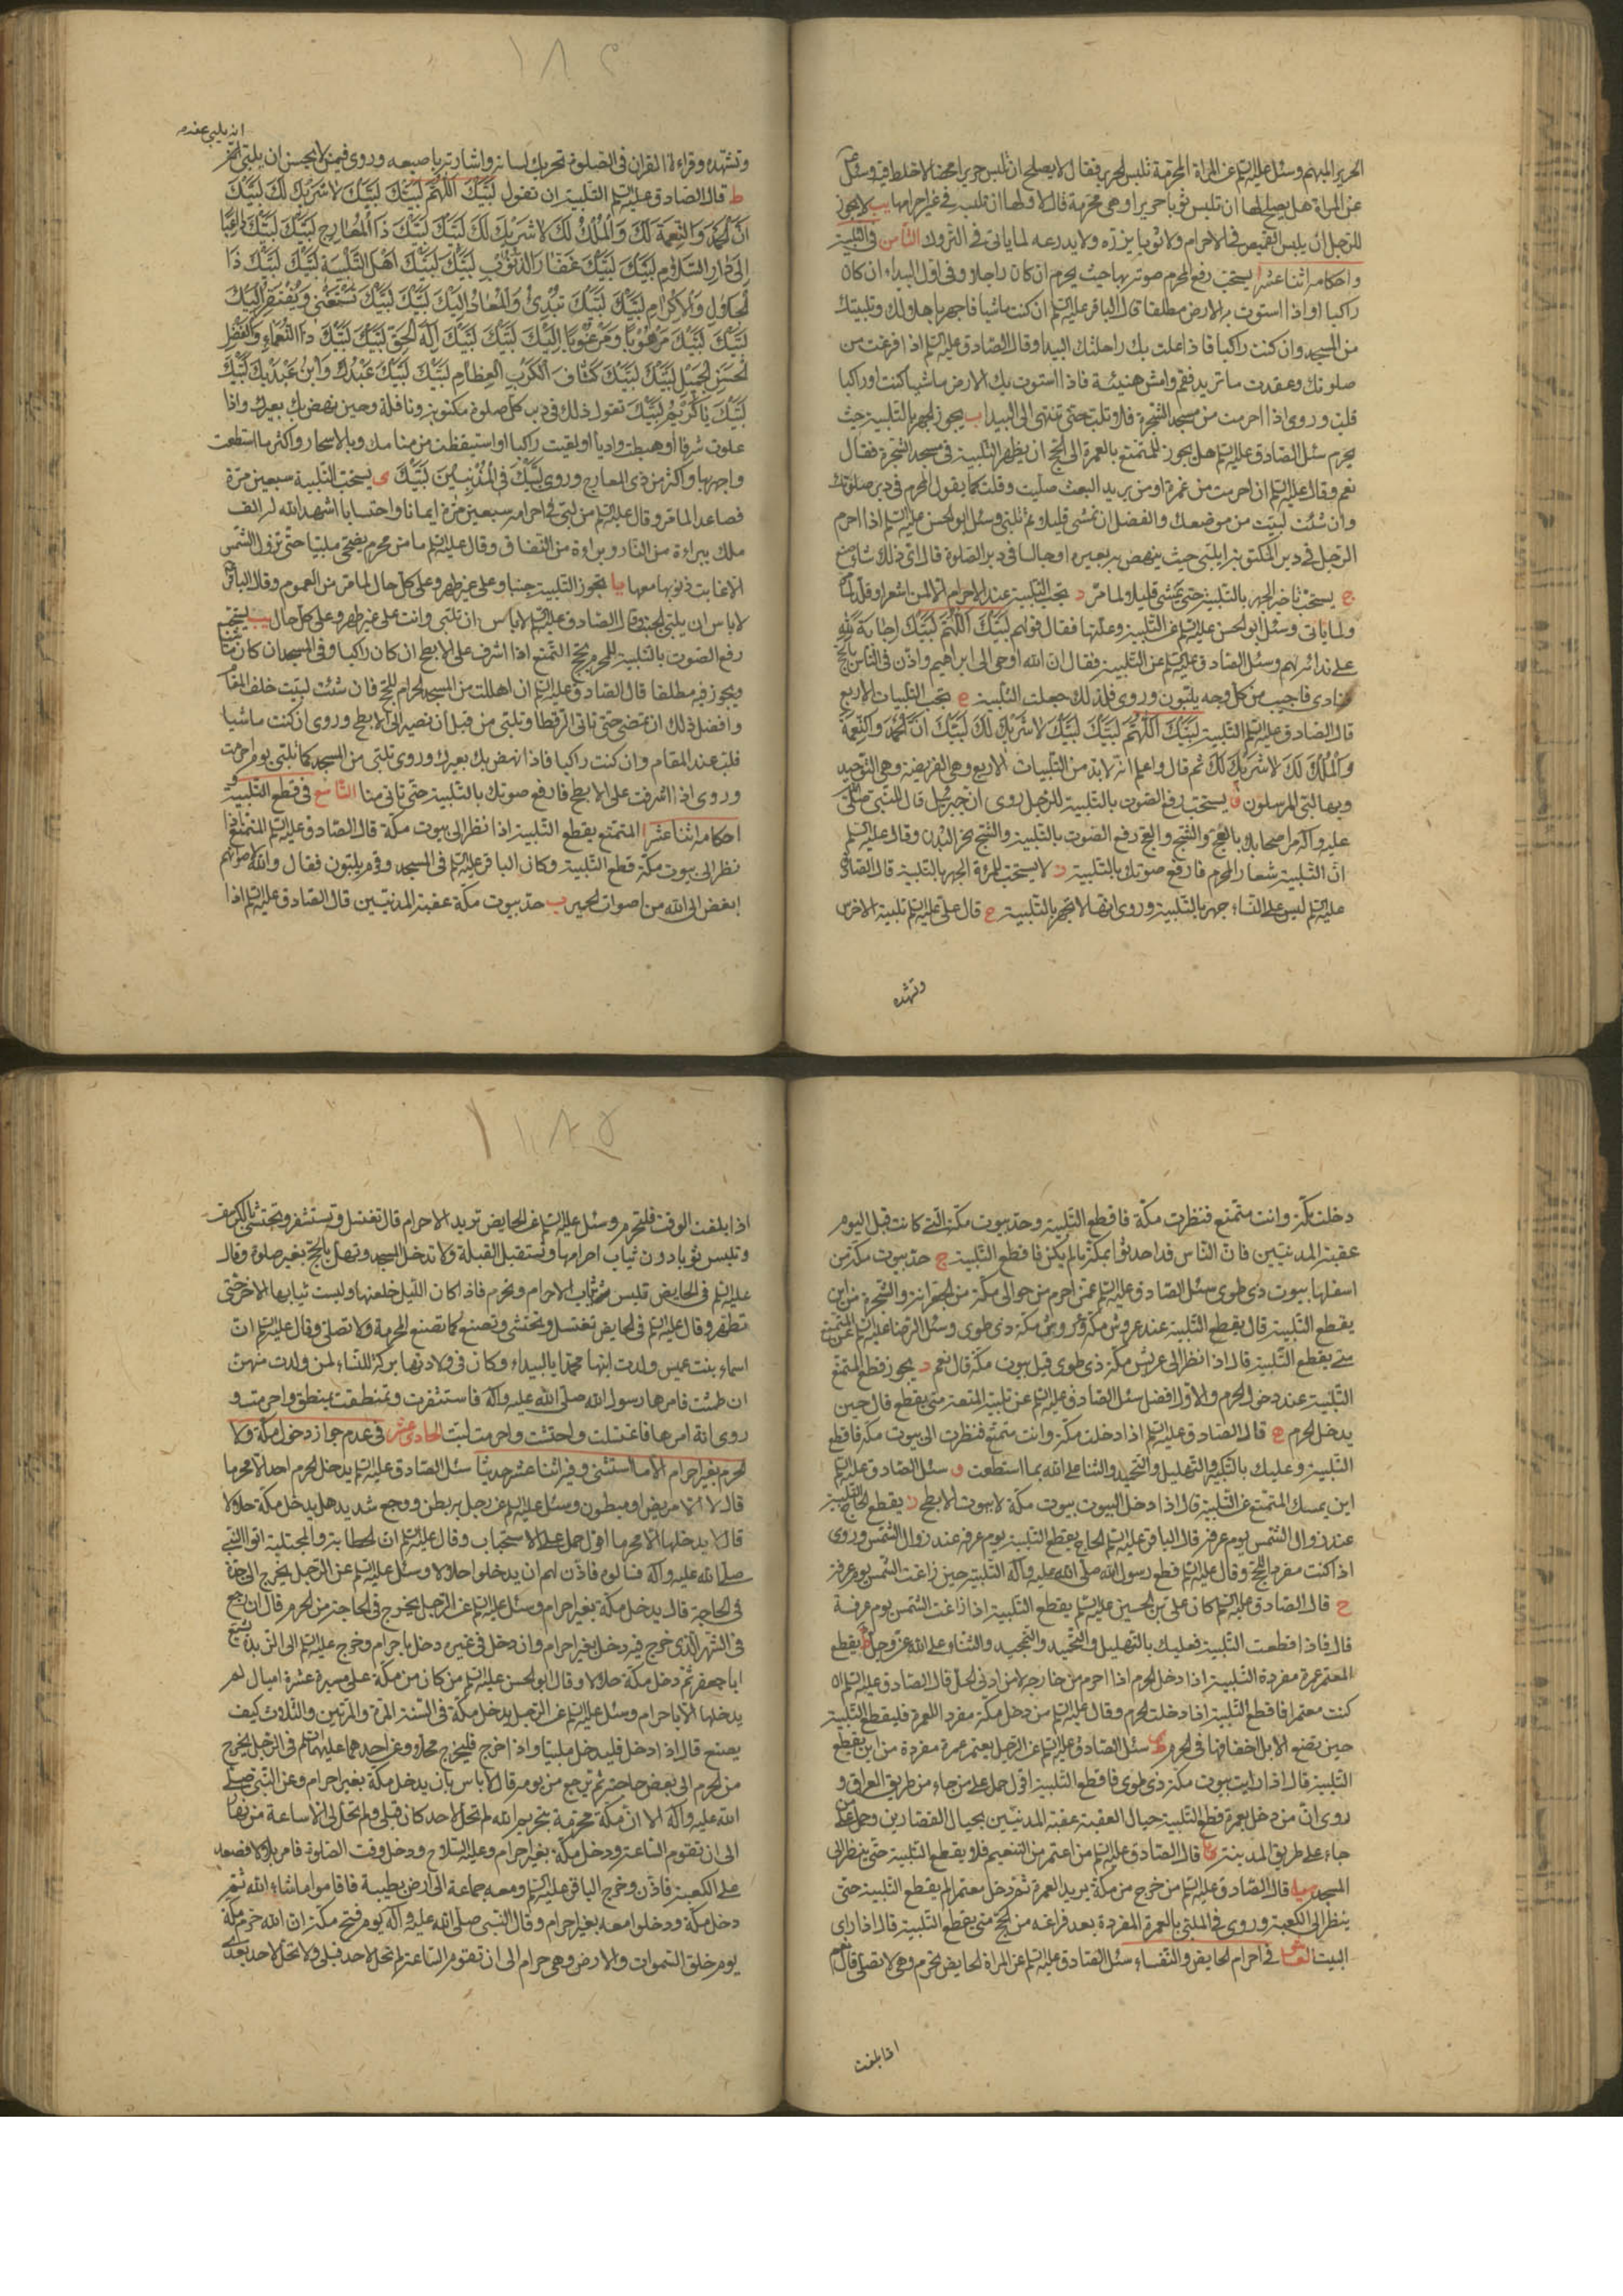 الحرير المبهم وسئل عليه السلم عن المراة المحرمة تلبس الحرير فقال لا يصلح ان تلبس حريرا محضا لا خلط فيه وسئل
عن المراة هل يصلح لها ان تلبس ثوبا حريرا وهي محرمة قال لا ولها ان تلبسه في غير احرامها يب لا يجوز
للرجل ان يلبس القميص في الاحرام ولا ثوبا يزره ولا يدرعه لما ياتي في التروك الثامن في التلبية
واحكامه اثنا عشر ا يستحب رفع المحرم صوته بها حيث يحرم ان كان راجلا وفي اول البيداء ان كان
راكبا او اذا استوت به الارض مطلقا قال الباقر عليه السلم ان كنت ماشيا فاجهر باهلالك وتلبيتك
من المسجد وان كنت راكبا فاذا علت بك راحلتك البيدا وقال الصادق عليه السلم اذا فرغت من
صلوتك وعقدت ما تريد فقم وامش هنيئة فاذا استوت بك الارض ماشيا كنت او راكبا
فلب وروى اذا احرمت من مسجد الشجرة فلا تلب حتى تنتهى الى البيدا ب يجوز الجهر بالتلبية حيث
يحرم سئل الصادق عليه السلم هل يجوز للمتمتع بالعمرة الى الحج ان يظهر التلبية في مسجد الشجرة فقال
نعم وقال عليه السلم ان احرمت من غمرة او من بريد البعث صليت وقلت كما يقول المحرم في دبر صلوتك
وان شئت لبيت من موضعك والفضل ان تمشى قليلا ثم تلبى وسئل ابو الحسن عليه السلم اذا احرم
الرجل في دبر المكتوبة ايلبى حيث ينهض به بعيره او جالسا في دبر الصلوة قال اى ذلك شاء صنع
ج يستحب تاخير الجهر بالتلبية حتى يمشى قليلا لما مر د تجب التلبية عند الاحرام الا لمن اشعر او قلد لما مر
ولما ياتى وسئل ابو الحسن عليه السلم عن التلبية وعلتها فقال قولهم لبيك اللهم لبيك اجابة لله
على ندائه لهم وسئل الصادق عليه السلم عن التلبية فقال ان الله اوحى الى ابراهيم واذن في الناس بالحج
فنادى فاجيب من كل وجه يلبون وروى فلذلك جعلت التلبية ه تجب التلبيات الاربع
قال الصادق عليه السلم التلبية لبيك اللهم لبيك لبيك لا شريك لك لبيك ان الحمد والنعمة
والملك لك لا شريك لك ثم قال واعلم انه لا بد من التلبيات الاربع وهي الفريضة وهي التوحيد
وبها لبى المرسلون و يستحب رفع الصوت بالتلبية للرجل روى ان جبرئيل قال للنبي صلى الله
عليه وآله مر اصحابك بالعج والثج والعج رفع الصوت بالتلبية والثج نحر البدن وقال عليه السلم
ان التلبية شعار المحرم فارفع صوتك بالتلبية ز لا يستحب للمراة الجهر بالتلبية قال الصادق
عليه السلم ليس على النساء جهر بالتلبية وروى انها لا تجهر بالتلبية ح قال على عليه السلم تلبية الاخرس
وتشهده
١٨٤
وتشهده وقراءة القران في الصلوة تحريك لسانه واشارته باصبعه وروى فيمن لا يحسن ان يلبى المحرم
انه يلبى عنه
ط قال الصادق عليه السلم التلبية ان تقول لبيك اللهم لبيك لبيك لا شريك لك لبيك
ان الحمد والنعمة لك والملك لك لا شريك لك لبيك لبيك ذا المعارج لبيك لبيك داعيا
الى دار السلام لبيك لبيك غفار الذنوب لبيك لبيك اهل التلبية لبيك لبيك ذا
الجلال والاكرام لبيك لبيك تبدئ والمعاد اليك لبيك لبيك تستغنى ويفتقر اليك
لبيك لبيك مرهوبا ومرغوبا اليك لبيك لبيك اله الحق لبيك لبيك ذا النعماء والفضل
الحسن الجميل لبيك لبيك كشاف الكرب العظام لبيك لبيك عبدك وابن عبديك لبيك
لبيك يا كريم لبيك تقول ذلك في دبر كل صلوة مكتوبة ونافلة وحين ينهض بك بعيرك واذا
علوت شرفا او هبطت واديا او لقيت راكبا او استيقظت من منامك وبالاسحار واكثر ما استطعت
واجهر بها واكثر من ذى المعارج وروى لبيك في المذنبين لبيك ى يستحب التلبية سبعين مرة
فصاعدا لما مر وقال عليه السلم من لبى في احرامه سبعين مرة ايمانا واحتسابا اشهد الله له الف
ملك ببراءة من النار وبراءة من النفاق وقال عليه السلم ما من محرم يضحى ملبيا حتى تزول الشمس
الا غابت ذنوبه معها يا يجوز التلبية جنبا وعلى غير طهر وعلى كل حال لما مر من العموم وقال الباقر
لا باس ان يلبى الجنب وقال الصادق عليه السلم لا باس ان تلبى وانت على غير طهر وعلى كل حال يب يستحب
رفع الصوت بالتلبية للمحرم بحج التمتع اذا اشرف على الابطح ان كان راكبا وفي المسجد ان كان ماشيا
ويجوز فيه مطلقا قال الصادق عليه السلم ان اهللت من المسجد الحرام للحج فان شئت لبيت خلف المقام
وافضل ذلك ان تمضى حتى تاتى الرقطا وتلبى من قبل ان تصير الى الابطح وروى ان كنت ماشيا
فلب عند المقام وان كنت راكبا فاذا نهض بك بعيرك وروى تلبى من المسجد كما تلبى يوم احرمت
وروى اذا اشرفت على الابطح فارفع صوتك بالتلبية حتى تاتى منا التاسع في قطع التلبية
احكامه اثنا عشر ا المتمتع يقطع التلبية اذا نظر الى بيوت مكة قال الصادق عليه السلم المتمتع اذا
نظر الى بيوت مكة قطع التلبية وكان الباقر عليه السلم في المسجد وقوم يلبون فقال والله لاصواتهم
ابغض الى الله من اصوات الحمير ب حد بيوت مكة عقبة المدنيين قال الصادق عليه السلم اذا
دخلت مكة وانت متمتع فنظرت مكة فاقطع التلبية وحد بيوت مكة التي كانت قبل اليوم
عقبة المدنيين فان الناس قد احدثوا بمكة ما لم يكن فاقطع التلبية ج حد بيوت مكة من
اسفلها بيوت ذى طوى سئل الصادق عليه السلم عمن احرم من حوالى مكة من الجعرانة والشجرة من اين
يقطع التلبية قال يقطع التلبية عند عروش مكة وعروش مكة ذى طوى وسئل الرضا عليه السلم عن المتمتع
متى يقطع التلبية قال اذا نظر الى عريش مكة ذى طوى قيل بيوت مكة قال نعم د يجوز قطع المتمتع
التلبية عند دخول الحرم والاول افضل سئل الصادق عليه السلم عن تلبية المتعة متى يقطع قال حين
يدخل الحرم ه قال الصادق عليه السلم اذا دخلت مكة وانت متمتع فنظرت الى بيوت مكة فاقطع
التلبية وعليك بالتكبير والتهليل والتحميد والثنا على الله بما استطعت و سئل الصادق عليه السلم
اين يمسك المتمتع عن التلبية قال اذا دخل البيوت بيوت مكة لا بيوت الابطح ز يقطع الحاج التلبية
عند زوال الشمس يوم عرفة قال الباقر عليه السلم الحاج يقطع التلبية يوم عرفة عند زوال الشمس وروى
اذا كنت مفردا للحج وقال عليه السلم قطع رسول الله صلى الله عليه وآله التلبية حين زاغت الشمس يوم عرفة
ح قال الصادق عليه السلم كان على بن الحسين عليه السلم يقطع التلبية اذا زاغت الشمس يوم عرفة
قال فاذا قطعت التلبية فعليك بالتهليل والتحميد والتمجيد والثناء على الله عز وجل ط يقطع
المعتمر عمرة مفردة التلبية اذا دخل الحرم اذا احرم من خارجه لا من ادنى الحل قال الصادق عليه السلم ان
كنت معتمرا فاقطع التلبية اذا دخلت الحرم وقال عليه السلم من دخل مكة مفردا للعمرة فليقطع التلبية
حين تضع الابل اخفافها في الحرم ى سئل الصادق عليه السلم عن الرجل يعتمر عمرة مفردة من اين يقطع
التلبية قال اذا رايت بيوت مكة ذى طوى فاقطع التلبية اقول حمل على من جاء من طريق العراق و
روى ان من دخل بعمرة قطع التلبية حيال العقبة عقبة المدنيين بحيال القصارين وحمل على من
جاء على طريق المدينة يا قال الصادق عليه السلم من اعتمر من التنعيم فلا يقطع التلبية حتى ينظر الى
المسجد يب قال الصادق عليه السلم من خرج من مكة يريد العمرة ثم دخل معتمرا لم يقطع التلبية حتى
ينظر الى الكعبة وروى في الملبى بالعمرة المفردة بعد فراغه من الحج متى يقطع التلبية قال اذا راى
البيت العاشر في احرام الحايض والنفساء سئل الصادق عليه السلم عن المراة الحايض تحرم وهي لا تصلى قال نعم
اذا بلغت
١٨٥
اذا بلغت الوقت فلتحرم وسئل عليه السلم عن الحايض تريد الاحرام قال تغتسل وتستثفر وتحتشى بالكرسف
وتلبس ثوبا دون ثياب احرامها وتستقبل القبلة ولا تدخل المسجد وتهل بالحج بغير صلوة وقال
عليه السلم في الحايض تلبس ثياب الاحرام وتحرم فاذا كان الليل خلعتها ولبست ثيابها الاخر حتى
تطهر وقال عليه السلم في الحايض تغتسل وتحتشى وتصنع كما تصنع المحرمة ولا تصلى وقال عليه السلم ان
اسماء بنت عميس ولدت ابنها محمدا بالبيداء وكان في ولادتها بركة للنساء لمن ولدت منهن
ان طمثت فامرها رسول الله صلى الله عليه وآله فاستثفرت وتمنطقت بمنطق واحرمت و
روى انه امرها فاغتسلت واحتشت واحرمت لبت الحادى عشر في عدم جواز دخول مكة ولا
الحرم بغير احرام الا ما استثنى وفيه اثنا عشر حديثا سئل الصادق عليه السلم يدخل الحرم احد الا محرما
قال لا الا مريض او مبطون وسئل عليه السلم عن رجل به بطن ووجع شديد هل يدخل مكة حلالا
قال لا يدخلها الا محرما اقول حمل على الاستحباب وقال عليه السلم ان الحطابة والمجتلبة اتوا النبي
صلى الله عليه وآله فسالوه فاذن لهم ان يدخلوا حلالا وسئل عليه السلم عن الرجل يخرج الى جدة
في الحاجة قال يدخل مكة بغير احرام وسئل عليه السلم عن الرجل يخرج في الحاجة من الحرم قال ان رجع
في الشهر الذى خرج فيه دخل بغير احرام وان دخل في غيره دخل باحرام وخرج عليه السلم الى الربذة يشيع
ابا جعفر ثم دخل مكة حلالا وقال ابو الحسن عليه السلم من كان من مكة على مسيرة عشرة اميال لم
يدخلها الا باحرام وسئل عليه السلم عن الرجل يدخل مكة في السنة المرة والمرتين والثلاث كيف
يصنع قال اذا دخل فليدخل ملبيا واذا خرج فليخرج محلا وعن احدهما عليهما السلم في الرجل يخرج
من الحرم الى بعض حاجته ثم يرجع من يومه قال لا باس بان يدخل مكة بغير احرام وعن النبي صلى
الله عليه وآله الا ان مكة محرمة بتحريم الله لم تحل لاحد كان قبلى ولم تحل لى الا ساعة من نهار
الى ان تقوم الساعة ودخل مكة بغير احرام وعليه السلاح ودخل وقت الصلوة فامر بلالا فصعد
على الكعبة فاذن وخرج الباقر عليه السلم ومعه جماعة الى ارض بطيبة فاقاموا ما شاء الله ثم
دخل مكة ودخلوا معه بغير احرام وقال النبي صلى الله عليه وآله يوم فتح مكة ان الله حرم مكة
يوم خلق السموات والارض وهي حرام الى ان تقوم الساعة لم تحل لاحد قبلى ولا تحل لاحد بعدى